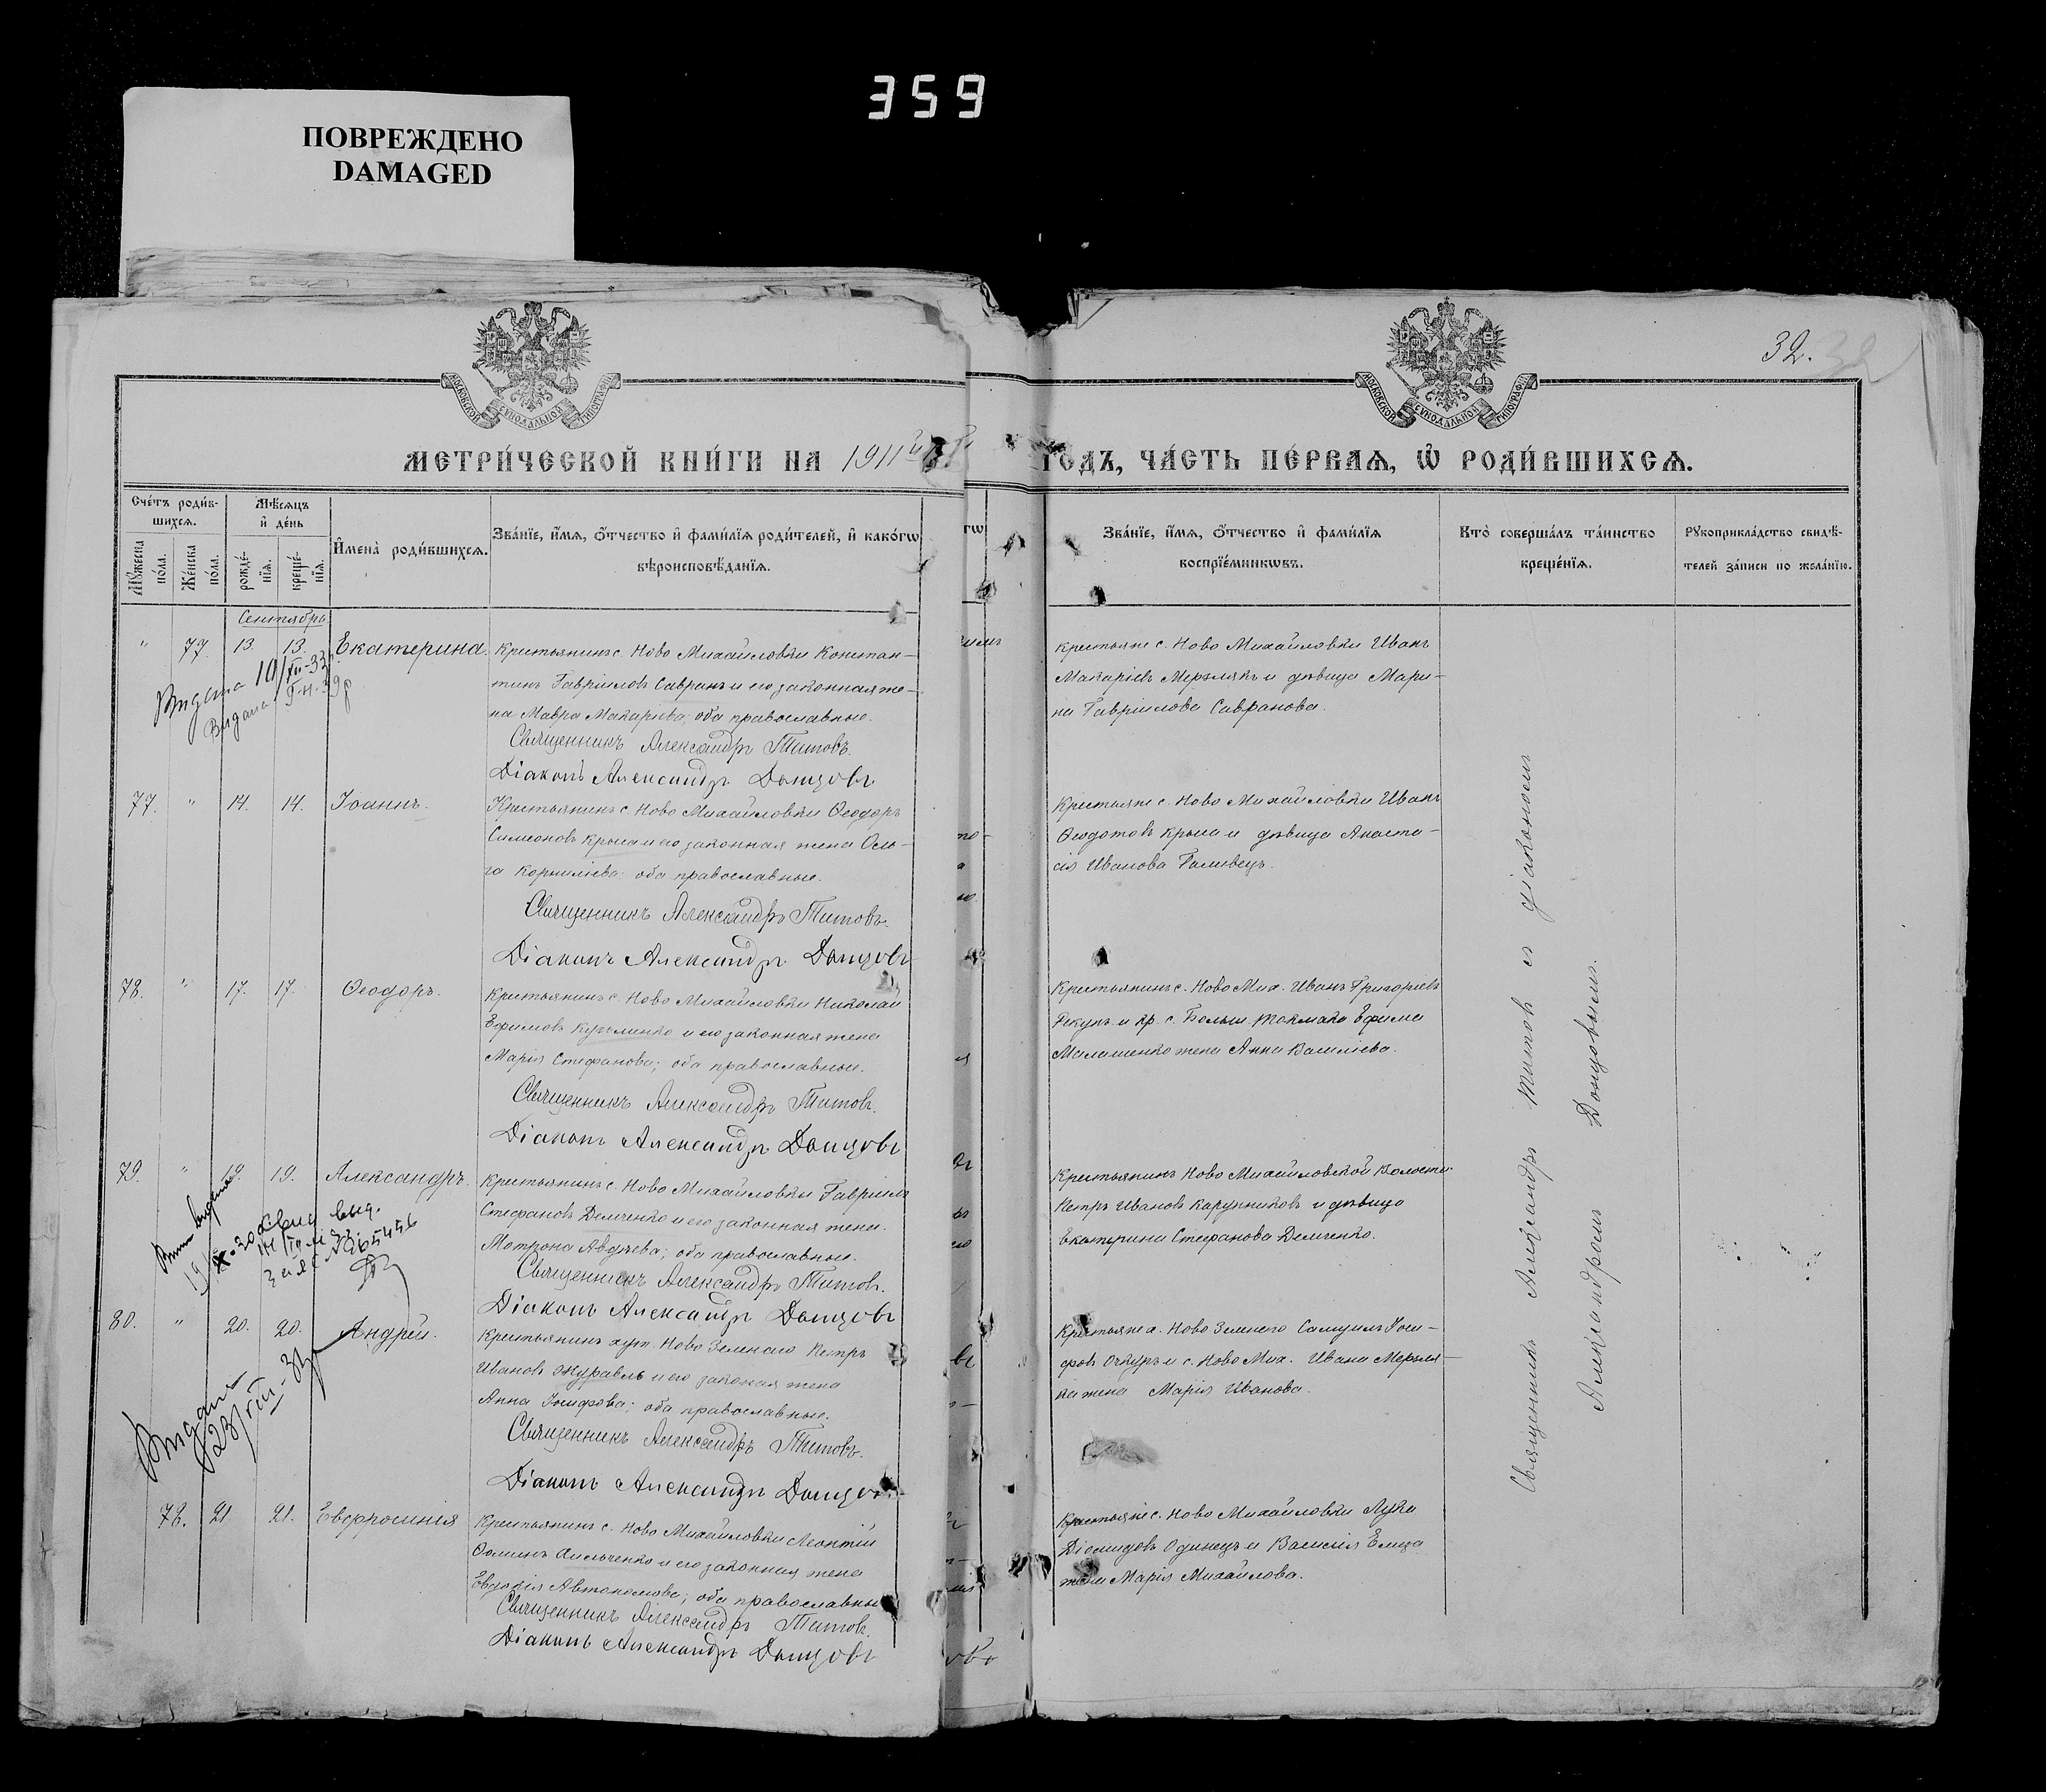 359
ПОВРЕЖДЕНО
DAMAGED
32.
МОСКОВСКОЙ СѴНОДАЛЬНОЙ ТИПОГРАФІИ
МОСКОВСКОЙ СѴНОДАЛЬНОЙ ТИПОГРАФІИ
МЕТРИ́ЧЕСКОЙ КНИ́ГИ НА 1911й
ГОДЪ, ЧА́СТЬ ПЕ́РВАѦ, Ѡ҆ РОДИ́ВШИХСѦ.
Сче́тъ роди́в-
шихсѧ.
Мꙋ́жеска по́ла.
Же́нска по́ла.
Мѣ́сѧцъ
и҆ де́нь
рожде́-
нїѧ.
креще́-
нїѧ.
И҆мена̀ роди́вшихсѧ.
Зва́нїе, и҆́мѧ, ѻ҆́тчество и҆ фами́лїѧ роди́телей, и҆ како́гѡ
вѣроисповѣ́данїѧ.
Зва́нїе, и҆́мѧ, ѻ҆́тчество и҆ фами́лїѧ
воспрїе́мникѡвъ.
Кто̀ соверша́лъ та́инство
креще́нїѧ.
Рꙋкоприкла́дство свидѣ́-
телей за́писи по жела́нїю.
Сентябрь
" 77. 13. 13. Екатерина.
Крестьянинъ с. Ново Михайловки Констан-
тинъ Гавріиловъ Савранъ и его законная же-
на Мавра Макаріева; оба православные.
Священникъ Александръ Титовъ.
Діаконъ Александръ Донцовъ
крестьяне с. Ново Михайловки Иванъ
Макаріевъ Мерзлякъ и дѣвица Мари-
на Гавріилова Савранова.
Видана 10/XII-33
Видана
77. " 14. 14. Іоаннъ.
Крестьянинъ с. Ново Михайловки Ѳеодоръ
Симеоновъ Крыса и его законная жена Оль-
га Корниліева оба православные.
Священникъ Александръ Титовъ.
Діаконъ Александръ Донцовъ
Крестьяне с. Ново Михайловки Иванъ
Ѳеодотовъ Крыса и дѣвица Анаста-
сія Иванова Голивецъ.
78. " 17. 17. Ѳеодоръ.
Крестьянинъ с. Ново Михайловки Николай
Ефимовъ и его законная жена
Марія Стефанова; оба православные.
Священникъ Александръ Титовъ.
Діаконъ Александръ Донцовъ
Крестьянинъ с. Ново Мих. Иванъ Григоріевъ
Рекунъ и кр. с. Больш. Токмака Ефима
Малашенко жена Анна Василіева.
79. " 19. 19. Александръ.
Крестьянинъ с. Ново Михайловки Гавріилъ
Стефановъ Демченко и его законная жена
Матрона Авдѣева; оба православные.
Священникъ Александръ Титовъ.
Діаконъ Александръ Донцовъ
Крестьянинъ Ново Михайловской Волости
Петръ Ивановъ Карунниковъ и дѣвица
Екатерина Стефанова Демченко.
80. " 20. 20. Андрей.
Крестьянинъ хут. Ново Зеленаго Петръ
Ивановъ Журавль и его законая жена
Анна Іосифова; оба православные.
Священникъ Александръ Титовъ.
Діаконъ Александръ Донцовъ
Крестьяне х. Ново Зеленаго Самуилъ Іоси-
фовъ Очкуръ и с. Ново Мих. Ивана Мерзля-
ка жена Марія Иванова.
Видана
23/VII-
78. 21. 21. Евфросинія
Крестьянинъ с. Ново Михайловки Леонтій
Ѳоминъ и его законная жена
Евдокія Автономова; оба православные
Священникъ Александръ Титовъ.
Діаконъ Александръ Донцовъ
Крестьяне с. Ново Михайловки Лука
Діомидовъ Одинецъ и Василія
жена Марія Михайлова.
Священникъ Александръ Титовъ съ діакономъ
Александромъ Донцовымъ.